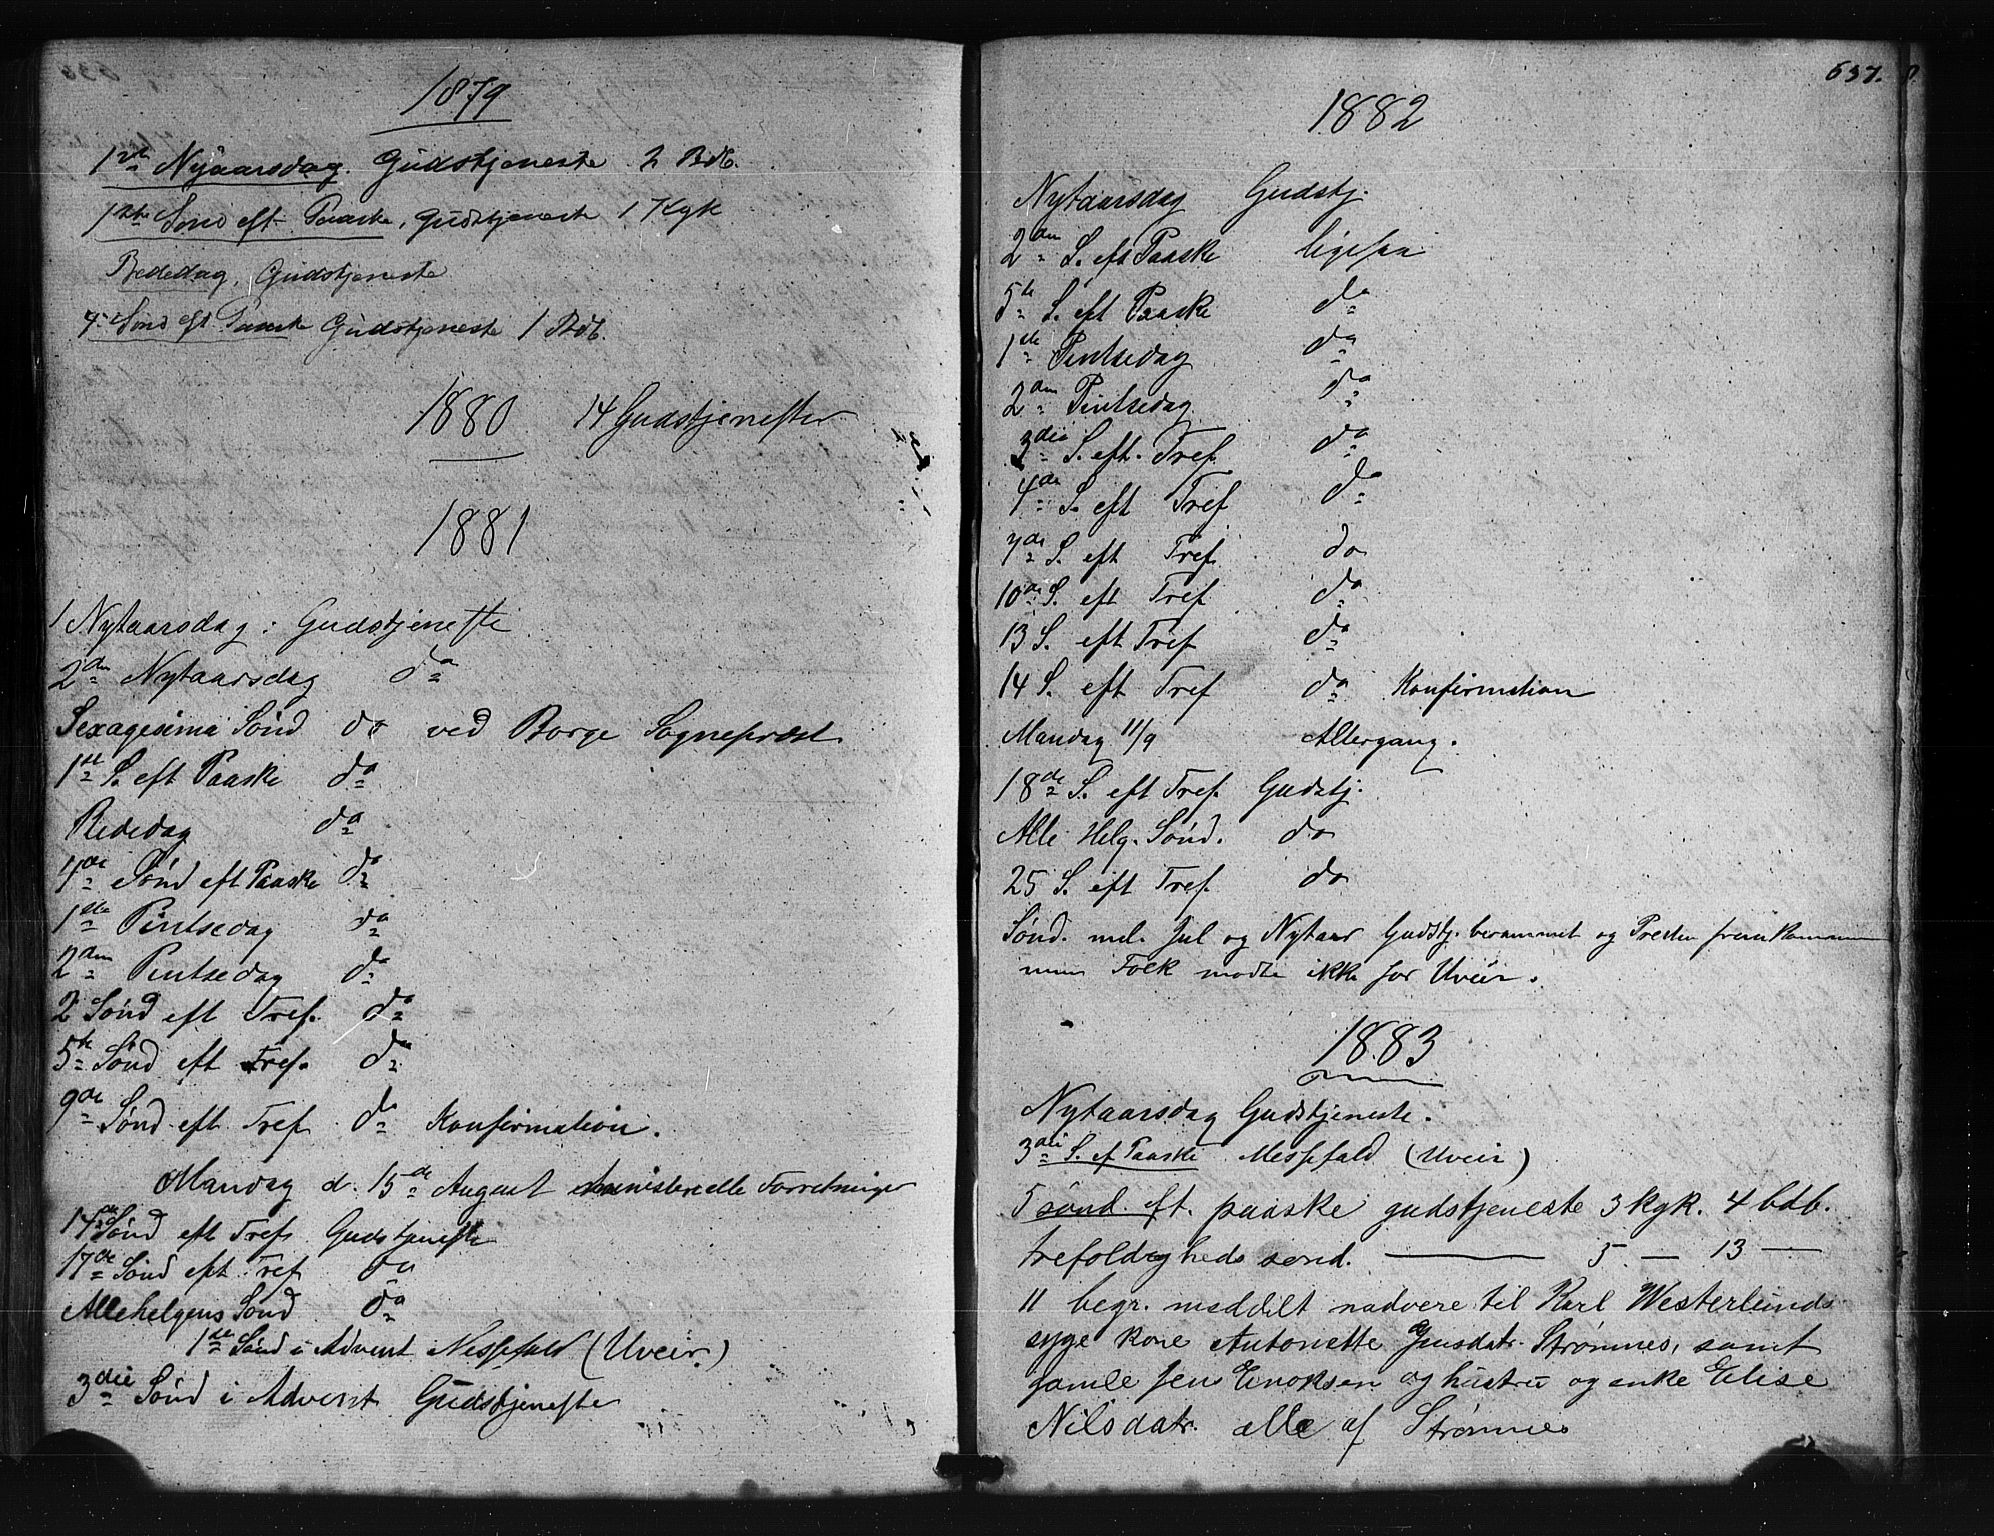 1879
1ste Nyaarsdag. Gudstjeneste 2 Bdb.
1ste Sønd eft Paaske, Gudstjeneste 1 Kgk
Bededag, Gudstjeneste
4. Sønd eft Paaske Gudstjeneste 1 Bdb.
1880 14 Gudstjenester
1881
1 Nytaarsdag: Gudstjeneste
2den Nytaarsdag do
Sexagesima Sønd do ved Borge Sognepræst
1ste S. eft Paaske do
Bededag do
4de Sønd eft Paaske do
1ste Pintsedag do
2den Pintsedag do
2 Sønd eft Tref. do
5te Sønd eft Tref. do
9de Sønd eft Tref do Konfirmation.
Mandag d. 15de August ministerielle Forretninger
14de Sønd eft Tref. Gudstjeneste
17de Sønd eft Tref do
Allehelgens Sønd do
1ste Sønd i Advent Messefald (Uveir.)
3die Sønd i Advent Gudstjeneste
637.
1882
Nytaarsdag Gudstj.
2den S. eft Paaske ligesaa
5te S. eft Paaske do
1ste Pintsedag do
2den Pintsedag do
3die S. eft. Tref. do
4de S. eft Tref do
7de S. eft Tref. do
10de S. eft Tref do
13 S. eft Tref do
14 S. eft Tref do Konfirmation
Mandag 11/9 Altergang.
18de S. eft Tref. Gudstj.
Alle Helg. Sønd. do
25 S. eft Tref. do
Sønd. ml. Jul og Nytaar Gudstj. berammet og Presten fremkommen
men Folk mødte ikke for Uveir.
1883
Nytaarsdag Gudstjeneste.
3die S. ef Paaske Messefald (Uveir)
5 sønd. eft. paaske gudstjeneste 3 kgk. 4 bdb.
trefoldigheds sønd. — 5 — 13 —
11 begr. meddelt nadvere til Karl Westerlunds
syge kone Antonette Jensdatr. Strømnes, samt
gamle Jens Enoksen og hustru og enke Elise
Nilsdatr. alle af Strømnes